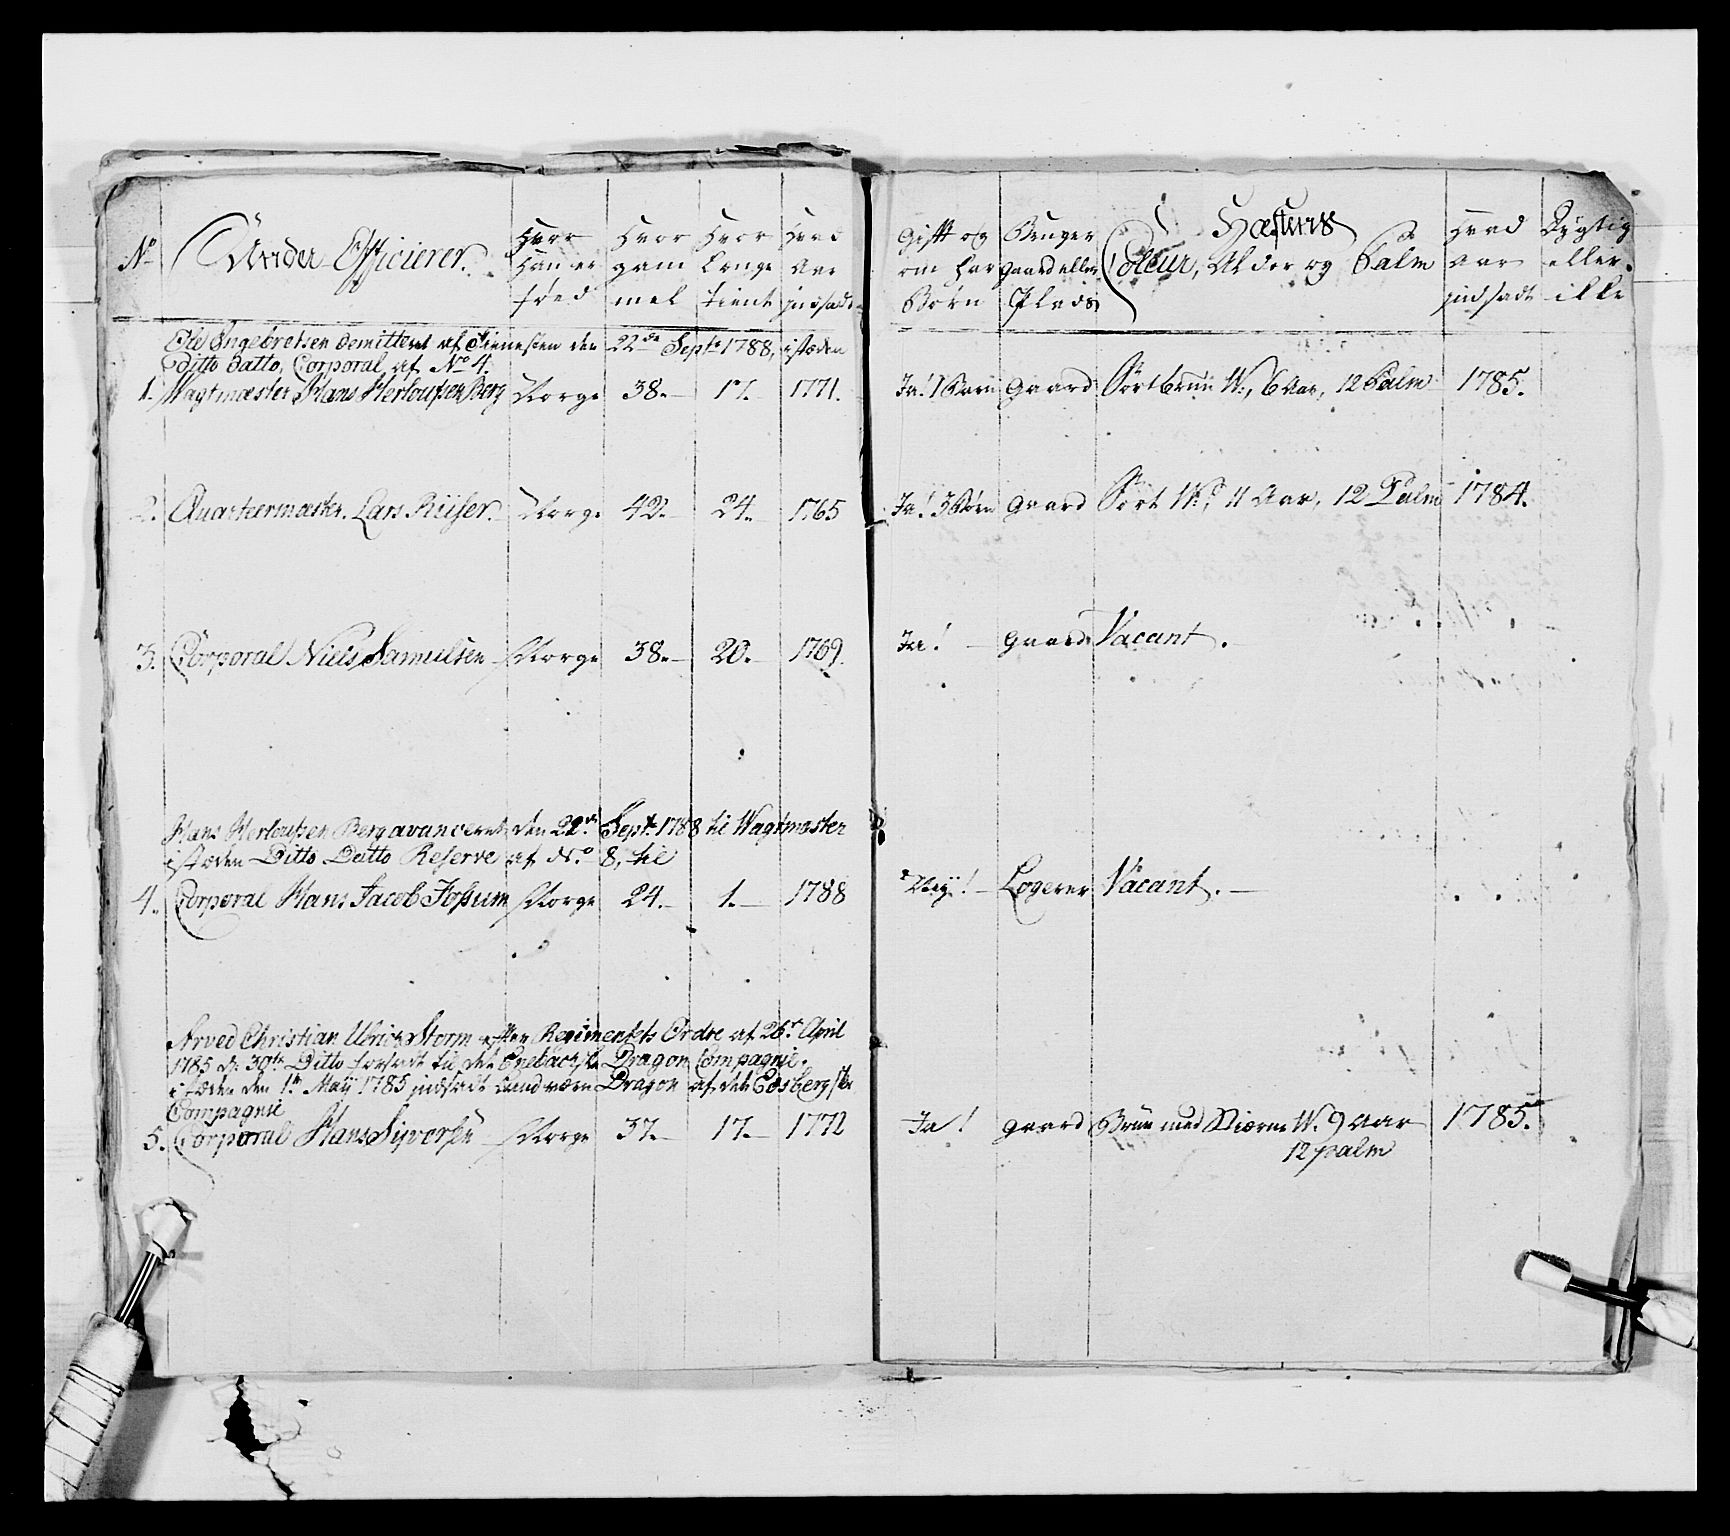 No | Under Officierer. | Hvor han er fød | Hvor gam mel | Hvor lenge tient | Hvad Aar indsadt | Gift og om har Børn | Bruger gaard eller Plads | Hæstens Coleur, Alder og Palm | Hvad Aar indsadt | Dygtig eller ikke
Ole Ingebretsen demitteret af Tienesten den 22de Septr 1788, istæden
ditto datto, Corporal af No 4.
1. Wagtmester Hans Herloufsen Berg | Norge | 38. | 17. | 1771. | Ja! 1 Barn | Gaard | Sortbrun W., 6 Aar, 12 Palm | 1785.
2. Quarteermester. Lars Riiser. | Norge | 42. | 24. | 1765 | Ja! 3 Børn | Gaard | Sort W., 11 Aar, 12 Palm | 1784.
3. Corporal Niels Samuelsen | Norge | 38. | 20. | 1769. | Ja! | Gaard | Vacant.
Hans Herloufsen Berg avanceret den 22de Septr 1788 til Wagtmester
istæden Ditto Datto Reserve af No 8, til
4. Corporal Hans Jacob Fossum | Norge | 24. | 1. | 1788 | Ney! | Logerer | Vacant.
Arved Christian Ulrich Storm efter Regimentets Ordre af 26t April
1785 d: 30te Ditto forsadt til det Enebackske Dragon Compagnie.
istæden den 1te Maÿ 1785 indsadt Landværn Dragon af det Edsbergske
Compagnie
5. Corporal Hans Syversen | Norge | 37. | 17. | 1772 | Ja! | gaard | Brun med Stierne W. 9 Aar | 1785.
12 palm